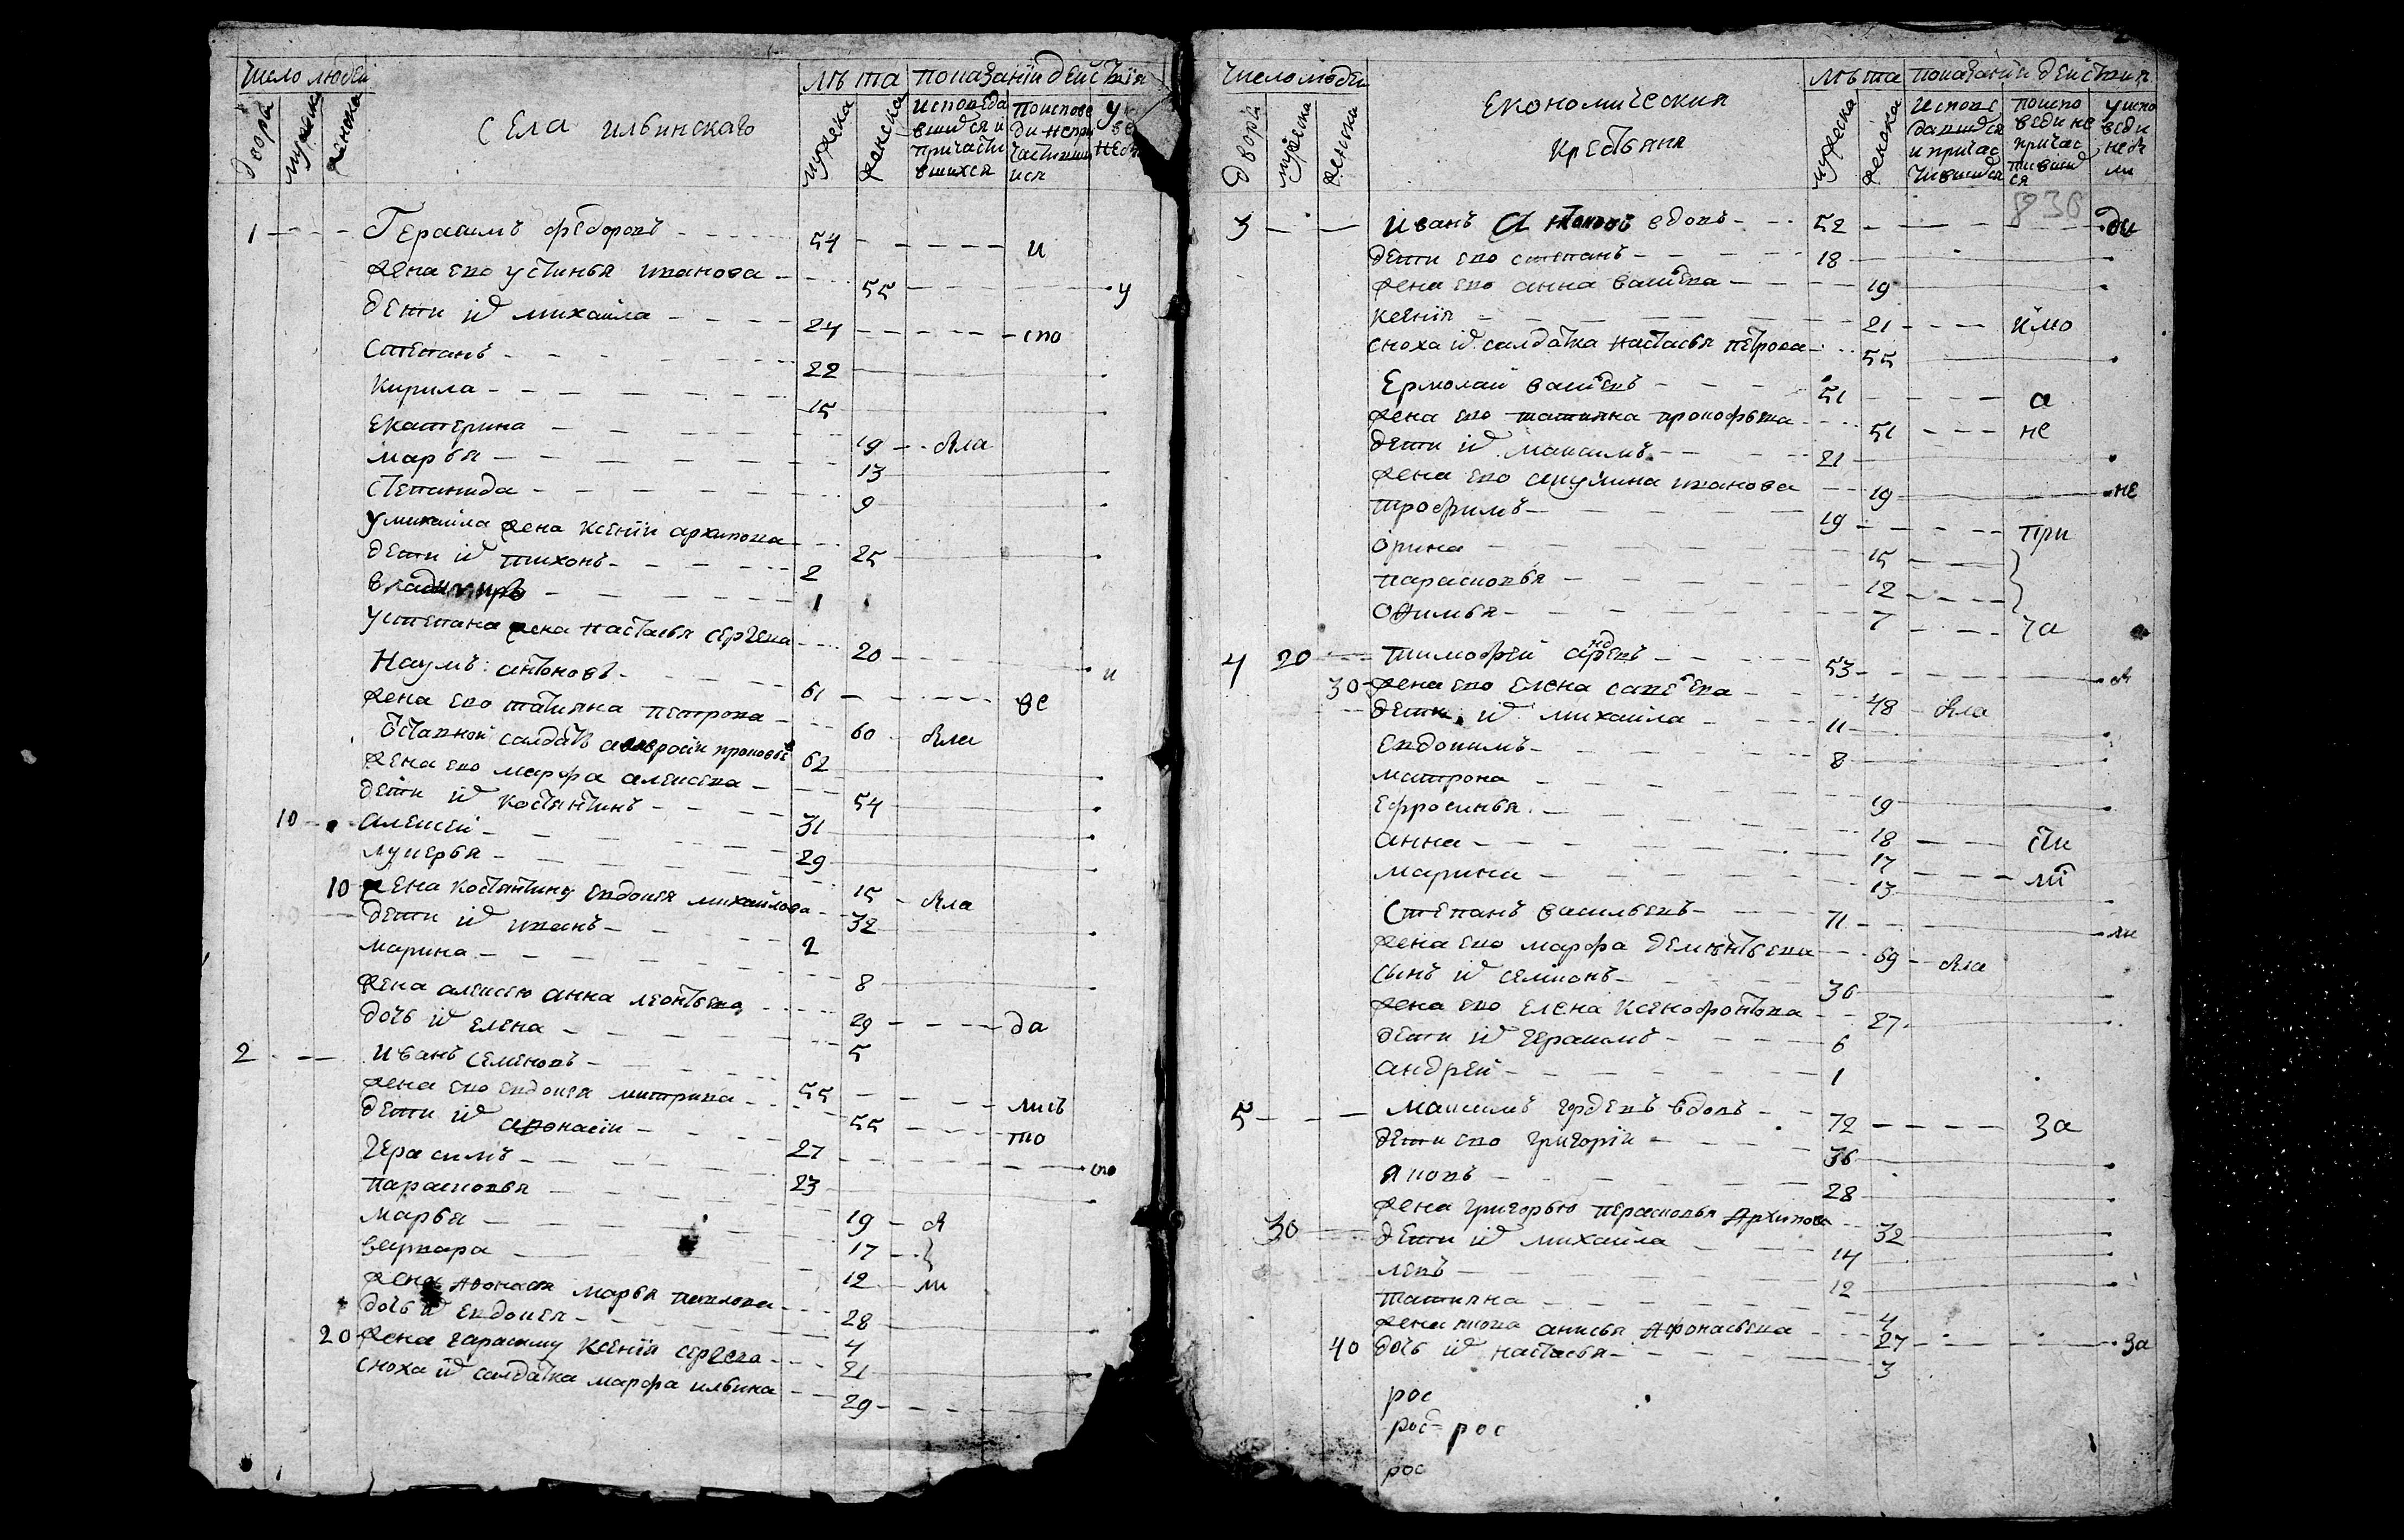 число людей
дворы
мужска
женска
Села ильинскаго
лѣта
мужска
женска
показаніи действія
исповеда
вшихся и
причасти
вшихся
поиспове
ди непри
частивши
ися
1 Герасимъ федоровъ 54 и
жена ево устинья иванова 55 у
дети их михаила 24 спо
Степанъ 22
Кирила 15
Екатерина 19 яла
марья 13
степанида 9
у михаила жена Ксенія архипова 25
дети их тихонъ 2
владимиръ 1
у степана жена настасья сергеева 20 и
Наумъ антоновъ 61 ве
жена ево татияна петрова 60
отставной салдатъ 62
жена ево марфа алексеева 54
дети их костянтинъ 31
10 алексей 29
лукерья 15
10 жена костянтину евдокея михайлова 32
дети их иванъ 2
марина 8
жена алексею анна леонтьева 29 да
дочь их елена 5
2 иванъ семеновъ 55 лись
жена ево евдокея митрива 55 то
дети их афонасіи 27
герасимъ 23
парасковья 19
марья 17
варвара 12 ли
жена афонасья марья павлова 28
дочь их евдокея 4
20 жена гарасиму Ксенія сергеева 21
сноха их салдатка марфа ильина 29
число людеи
дворы
мужеска
женска
Економическия
крестьяня
лѣта
мужеска
женска
показаніи действия
испове
давшихся
и причас
тившихся
поиспо
веди не
причас
тивших
ся
у испо
веди
не бы
ли
836
3 иванъ вдовъ 52 ди
дети ево степанъ 18
жена ево анна 19
ксенія 21
сноха их салдатка настасья петрова 55
Ермолаи 51 а
жена ево татияна прокофьева 51 не
дети их максимъ 21
жена ево акулина иванова 19 не
трофимъ 19 при
орина 15
парасковья 12
офимья 7 ча
4 20 тимофей 53
30 жена ево елена савеева 48
дети их михаила 11
евдокимъ 8
матрона 19
ефросинья 18 сти
анна 17
марина 13
степанъ васильевъ 71 ли
жена ево марфа дементьева 69
сынъ их семионъ 36
жена ево елена ксенофонтова 27
дети их герасимъ 6
андрей 1
5 максимъ гордеевъ вдовъ 72 за
дети ево григоріи 36
яковъ 28
жена григорью парасковья архипова 32
30 дети их михаила 14
левъ 12
татияна 4
жена якова анисья афонасьева 27 за
40 дочь их настасья 3
рос
рос рос
рос